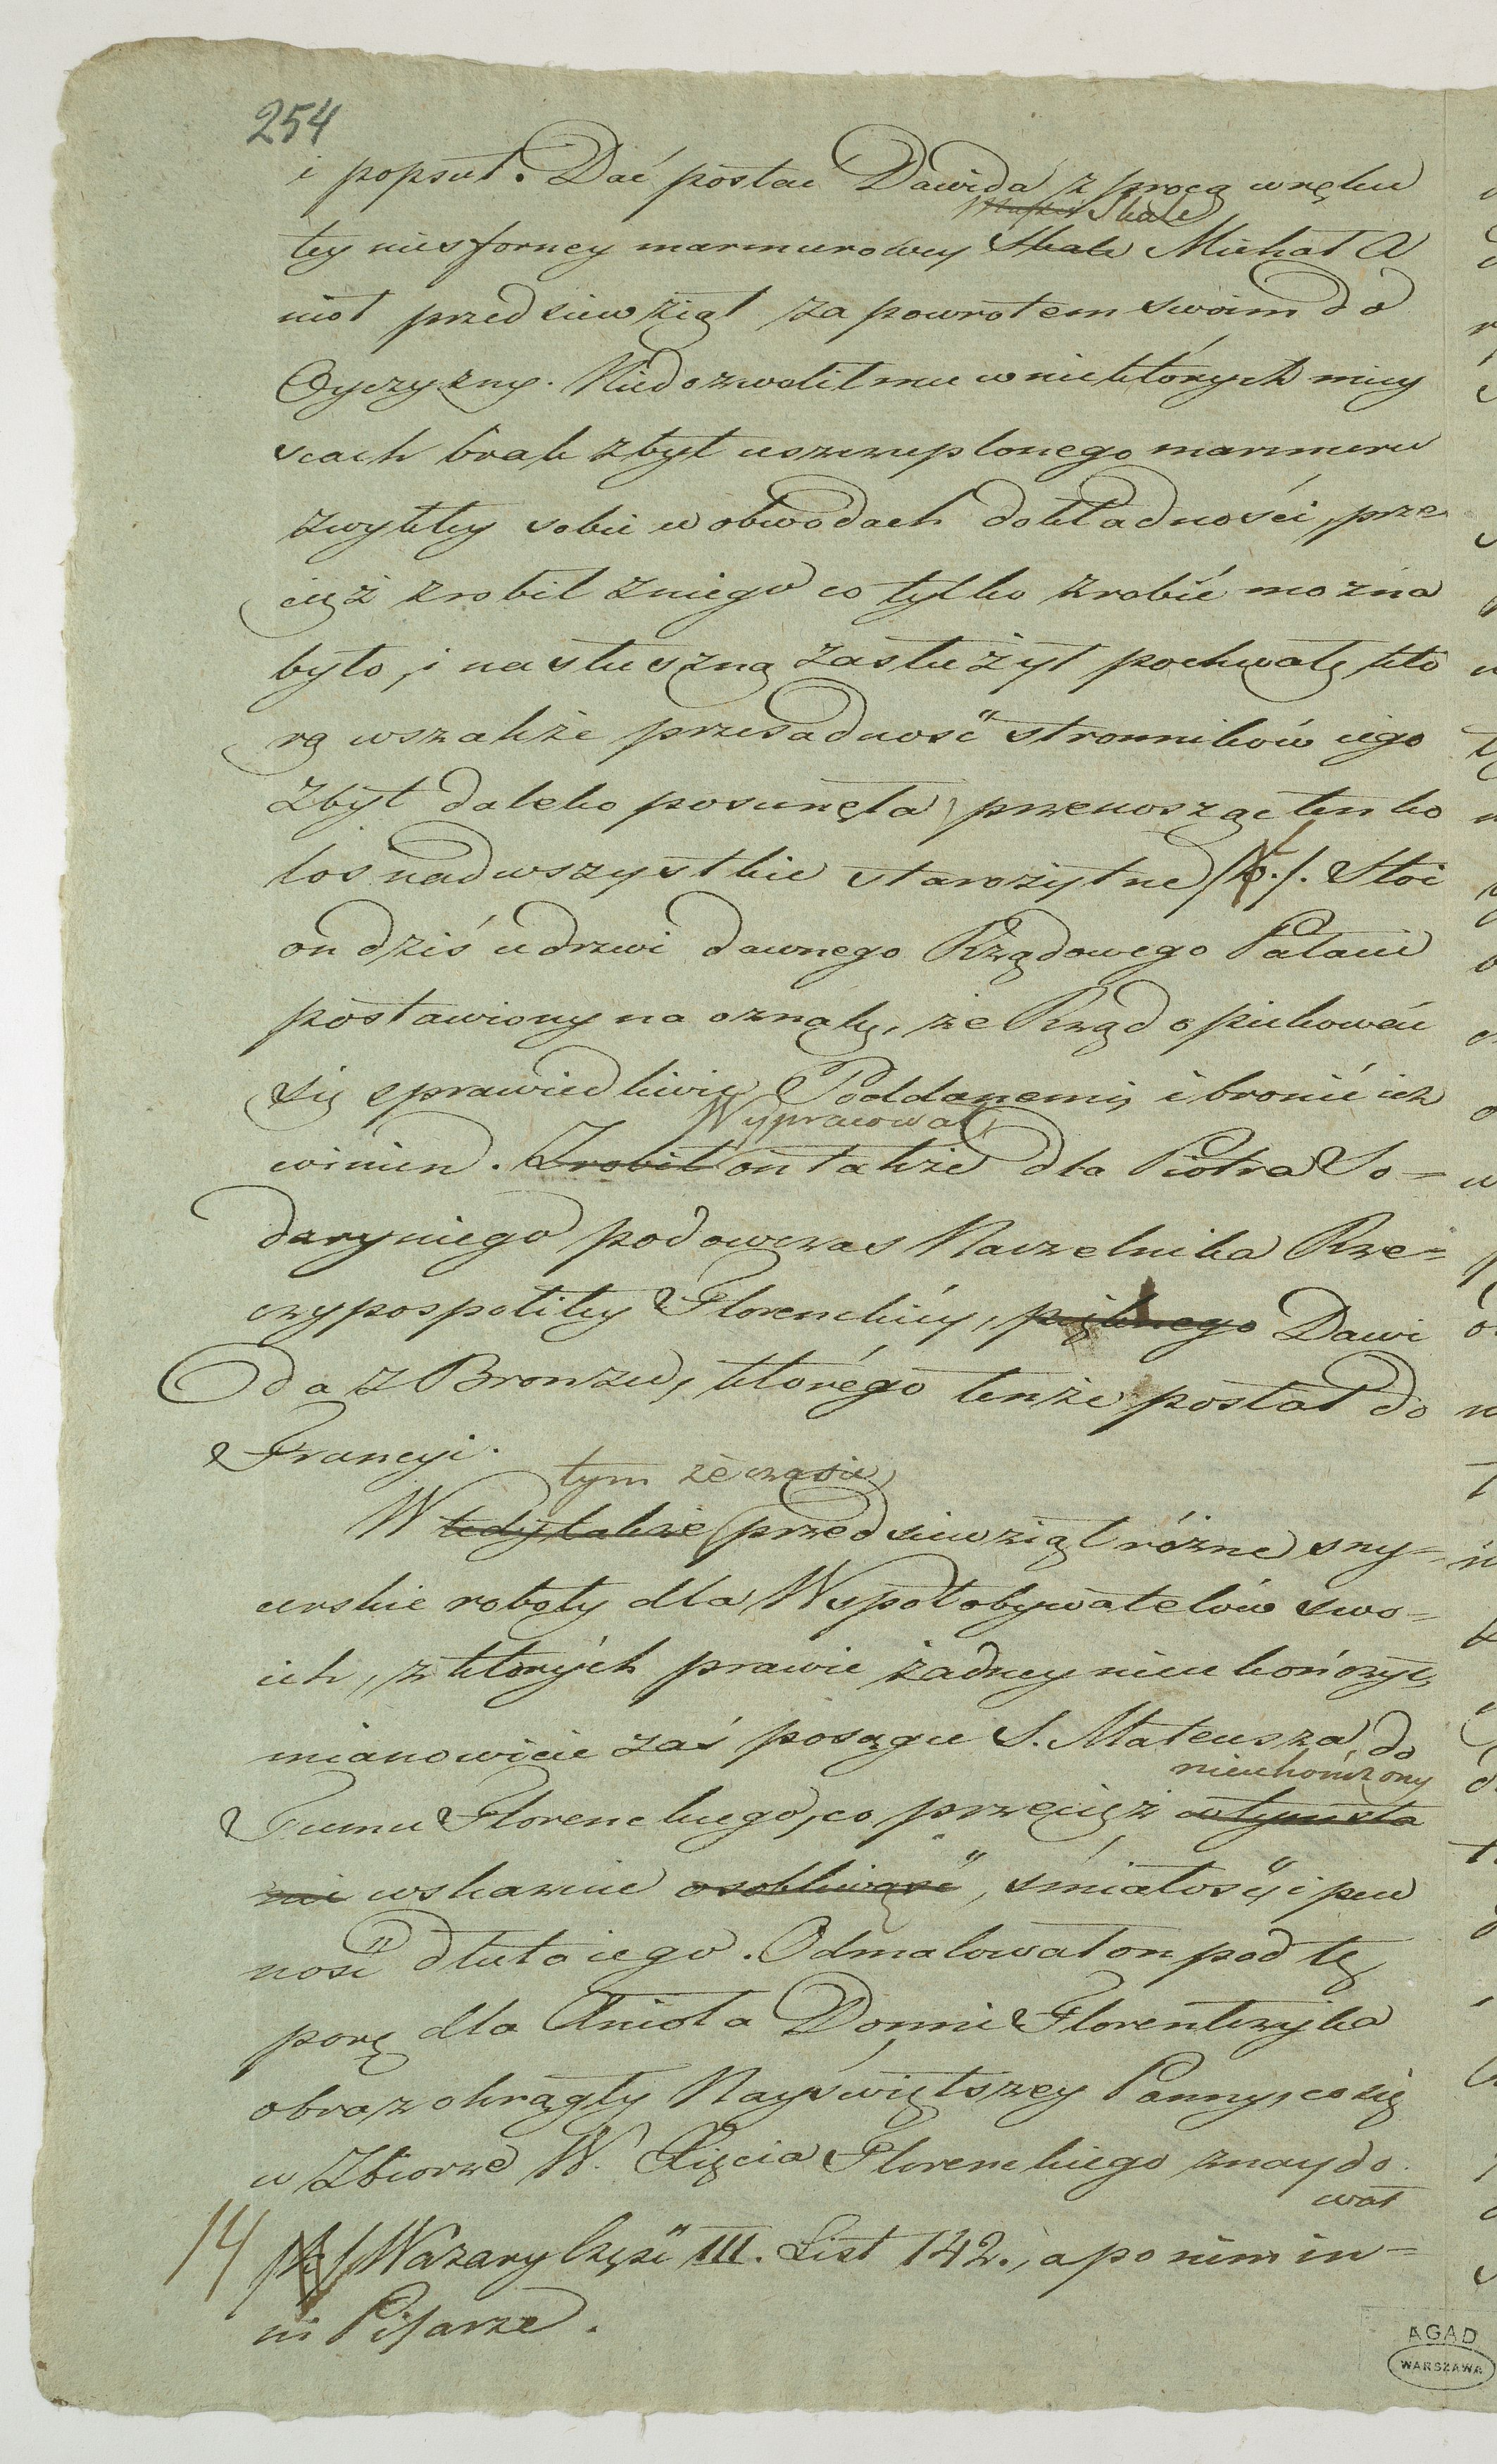 254
i popsuł. Dać postać Dawida z procą w ręku
Skale
tey niesforney marmurowey ~~Skale~~ Michał A
nioł przedsiewziął za powrotem swoim do
Oyczyzny. Niedozwolił mu w niektórych miey
scach brak zbyt uszczuplonego marmuru
zwykłey sobie w obwodach dokładności, prze
cięż zrobił z niego co tylko zrobić można
było, i na słuszną zasłużył pochwałę, któ
rą wszakże przesadność stronników iego
zbyt daleko posunęła, przenosząc ten ko
los nad wszystkie starożytne /k./. Stoi
on dziś u drzwi dawnego Rządowego Pałacu
postawiony na oznakę, że Rząd opiekować
się sprawiedliwie Poddanemi, i bronić ich
Wypracował
winien. ~~Zrobił~~ on także dla Piotra So=
daryniego podowczas Naczelnika Rze=
czypospolitey Florenckiéy, ~~pięknego~~ Dawi
da z Bronzu, którégo tenże posłał do
Francyi.
tym że czasie
W ~~tedy także~~ przedsiewziął różne sny=
cerskie roboty dla Wspołobywatelów swo=
ich, z których prawie żadney nieukończył,
mianowicie zaś posągu S. Mateusza do
nieukończony
Tumu Florenckiego, co przecięż ~~w tym sta~~
~~nie~~ wskazuie ~~osobliwość~~, śmiałość, i pew
ność dłuta iego. Odmalował on pod tę
porę dla Anioła Donni Florentczyka
obraz okrągły Nayświętszey Panny, co się
w Zbiorze W. Xięcia Florenckiego znaydo
wał
14 /k/ Wazary Część III. List 142., a po nim in=
ni Pisarze.
AGAD
WARSZAWA